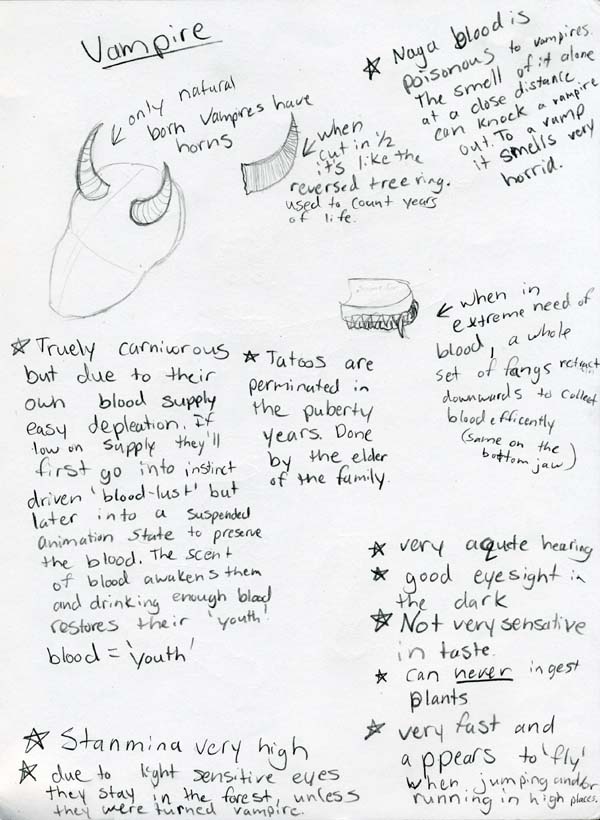 Vampire
only natural
born Vampires have
horns
when
cut in 1/2
it's like the
reversed tree ring.
used to count years
of life.
☆ Naga blood is
poisonous to vampires.
The smell of it alone
at a close distance
can knock a vampire
out. To a vamp
it smells very
horrid.
when in
extreme need of
blood, a whole
set of fangs retract
downwards to collect
blood efficently
(same on the
bottom jaw)
☆ Truely carnivorous
but due to their
own blood supply
easy depleation. If
low on supply they'll
first go into instinct
driven 'blood-lust' but
later into a suspended
animation state to preserve
the blood. The scent
of blood awakens them
and drinking enough blood
restores their 'youth'.
blood = 'youth'
☆ Tatoos are
perminated in
the puberty
years. Done
by the elder
of the family.
☆ very aqute hearing
☆ good eyesight in
the dark
☆ Not very sensative
in taste.
☆ can never ingest
plants
☆ very fast and
appears to 'fly'
when jumping and/or
running in high places.
☆ Stanmina very high
☆ due to light sensitive eyes
they stay in the forest, unless
they were turned vampire.